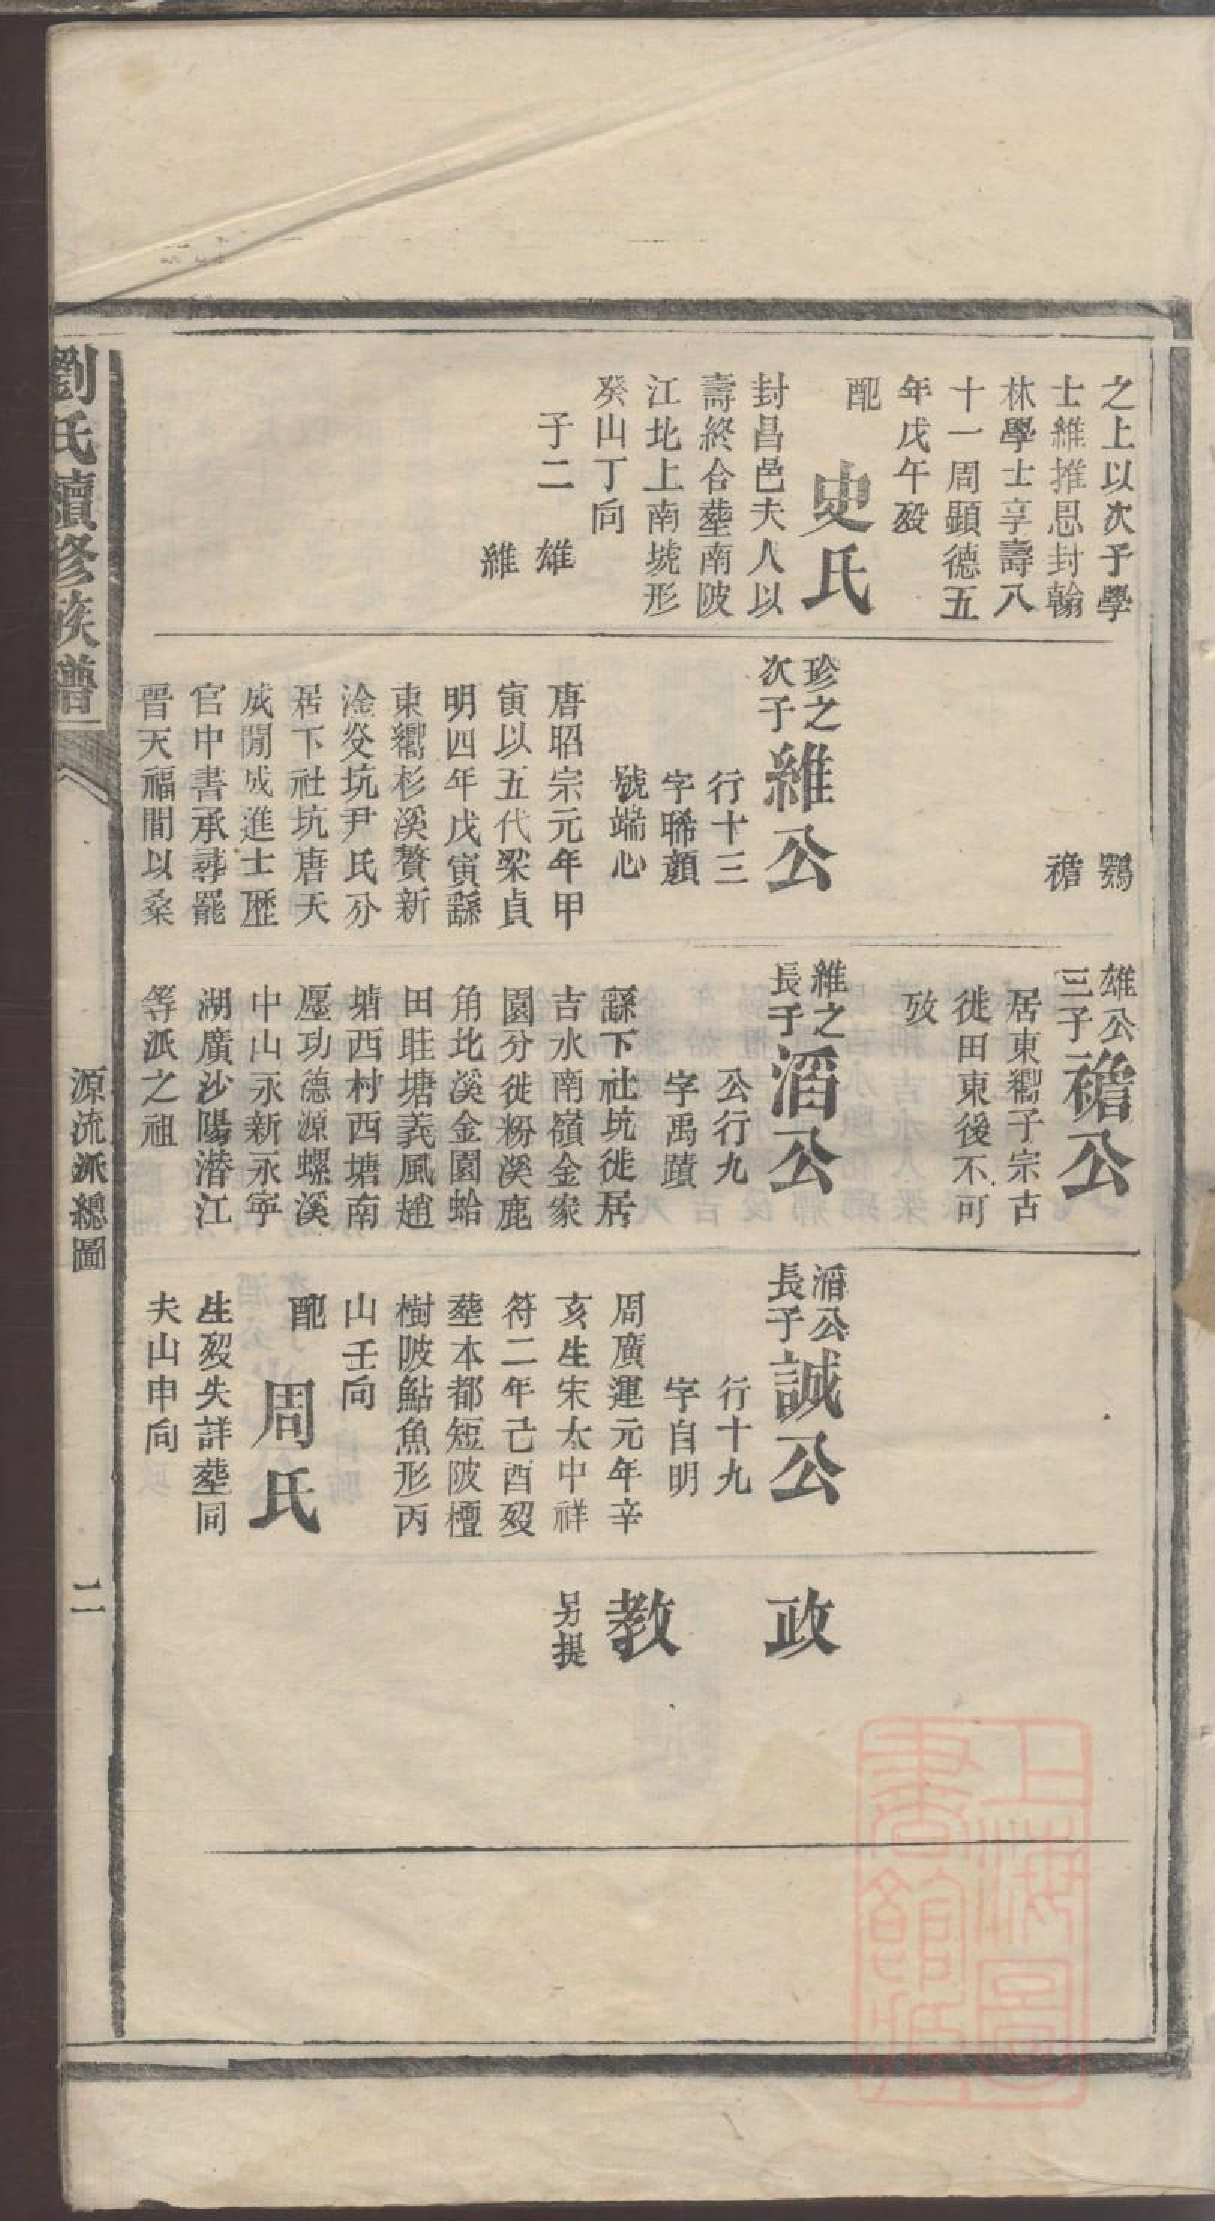 之上以次予學
士維推恩封翰
林學士享壽八
十一周顯德五
年戊午歿
配
史氏
封昌邑夫人以
壽終合塟南陂
江北上南坑形
癸山丁向
子二
雄
維
鶚
襜
珍之
次子
維公
行十三
字晞顏
號端心
唐昭宗元年甲
寅以五代梁貞
明四年戊寅繇
東鄉杉溪贅新
淦炎坑尹氏分
居下社坑唐天
成閒成進士歷
官中書承尋罷
晋天福間以桑
雄公
三子
襜公
居東鄉子宗古
徙田東後不可
攷
維之
長子
滔公
公行九
字禹蹟
繇下社坑徙居
吉水南嶺金家
園分徙粉溪鹿
角北溪金園蛤
田畦塘義風趙
塘西村西塘南
壓功德源螺溪
中山永新永寜
湖廣沙陽潜江
等派之祖
滔公
長子
誠公
行十九
字自明
周廣運元年辛
亥生宋太中祥
符二年己酉歿
塟本都短陂檀
樹陂鮎魚形丙
山壬向
配
周氏
生歿失詳塟同
夫山申向
政
教
另提
劉氏續修族譜
源流派總圖
二
上海圖
書館藏